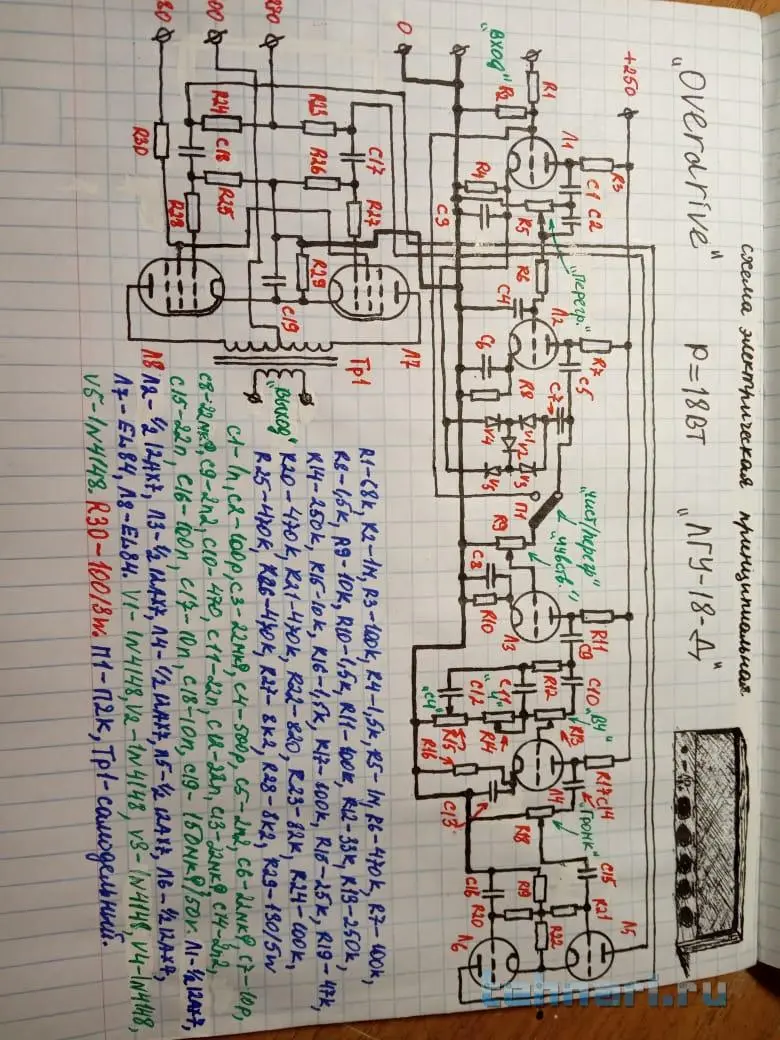 схема электрическая принципиальная
"Overdrive" P=18Вт "ЛГУ-18-Д"
+250
R3
R7
R11
R17 C14
Л1
C1
C2
Л2
C5
C7
"чист/перегр"
"чувств"
C9
C10
"ВЧ"
"Громк"
C15
R21
Л5
"вход"
R1
R2
R4
C3
R5
"перегр."
R6
C4
C6
R8
V1
V2
V3
V4
V5
П1
R9
C8
R10
Л3
R12
C11
"НЧ"
C12
"СЧ"
R13
R14
R15
R16
C13
Л4
R18
R19
R22
C16
R20
Л6
0
R25
C17
R26
R27
R24
C18
R25
R28
R30
R29
C19
Л7
Л8
Тр1
"выход"
R1-68k, R2-1м, R3-100k, R4-1,5k, R5-1м, R6-470k, R7-100k,
R8-1,5k, R9-10k, R10-1,5k, R11-100k, R12-33k, R13-250k,
R14-250k, R15-10k, R16-1,5k, R17-100k, R18-25k, R19-47k,
R20-470k, R21-470k, R22-820, R23-82k, R24-100k,
R25-470k, R26-470k, R27-8k2, R28-8k2, R29-130/5w
C1-1n, C2-100p, C3-22мкф, C4-500p, C5-2n2, C6-22мкф, C7-10p,
C8-22мкф, C9-2n2, C10-470, C11-22n, C12-22n, C13-22мкф, C14-2n2,
C15-22n, C16-100n, C17-10n, C18-10n, C19-150мкф/50v. Л1-½12AX7,
Л2-½12AX7, Л3-½12AX7, Л4-½12AX7, Л5-½12AX7, Л6-½12AX7,
Л7-EL84, Л8-EL84. V1-1N4148, V2-1N4148, V3-1N4148, V4-1N4148,
V5-1N4148. R30-100/3w. П1-П2К, Тр1-самодельный.
tannari.ru